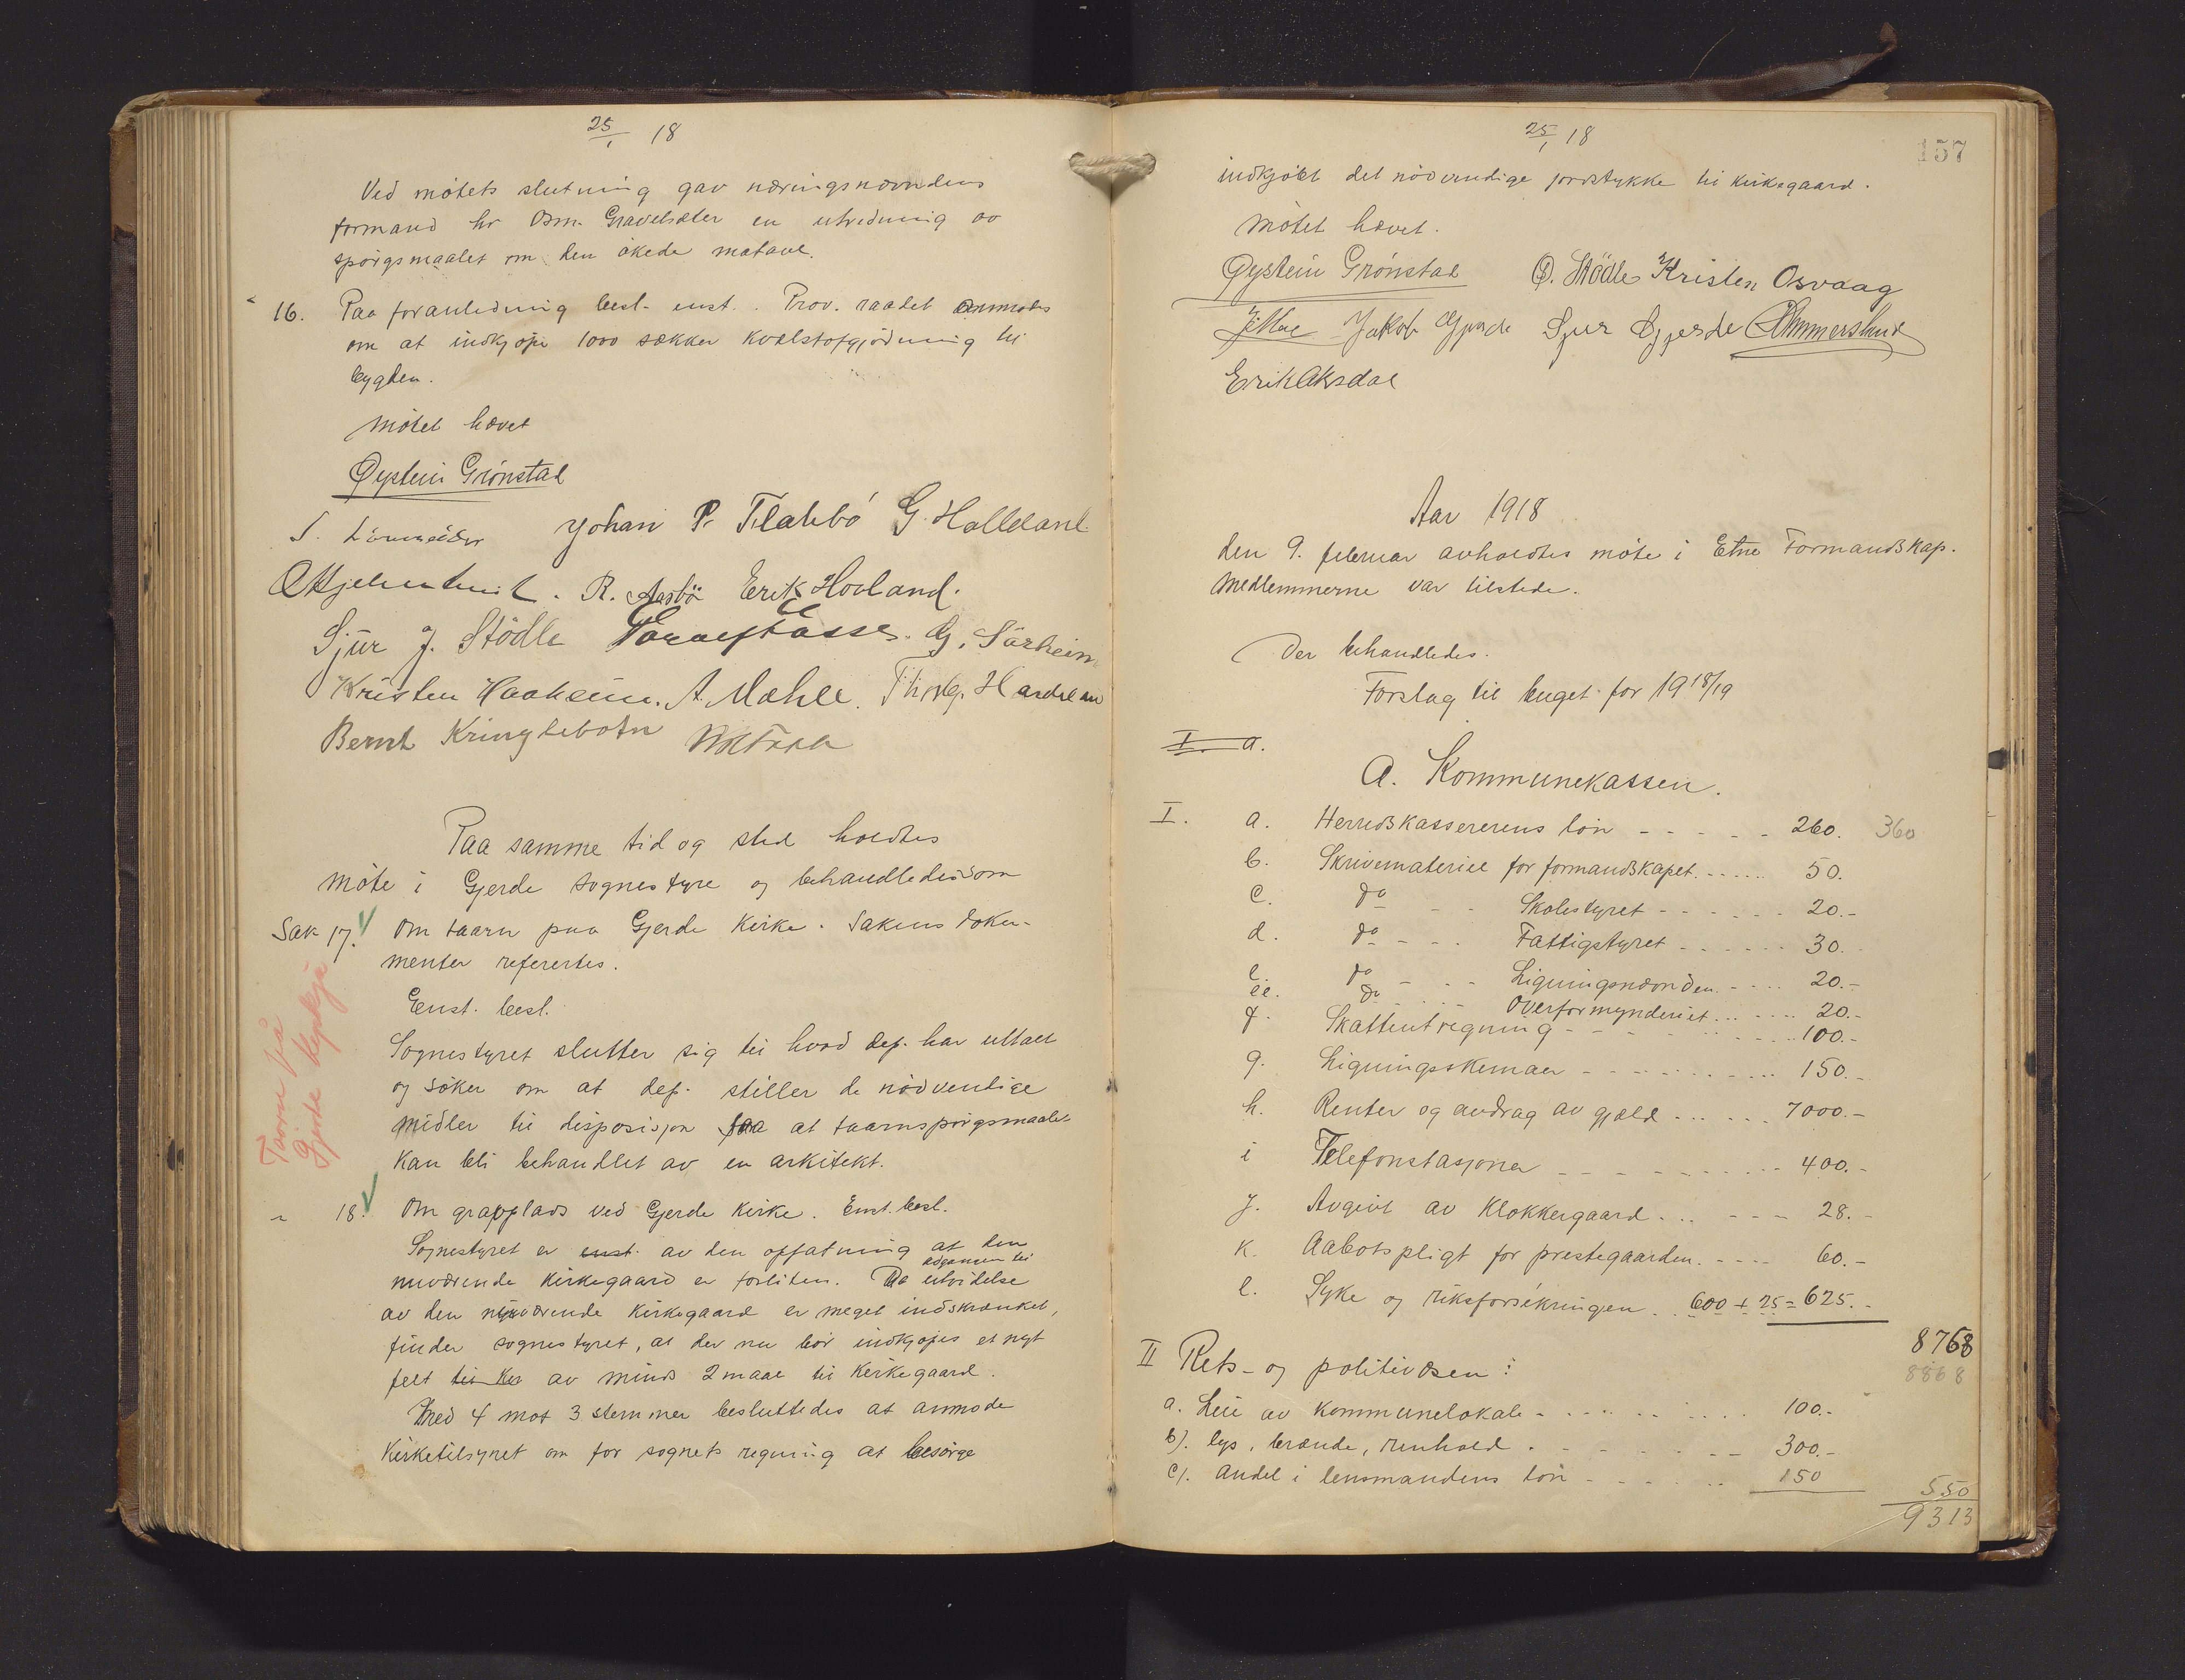 25/1 18
Ved møtets slutning gav næringsnævndens
formand hr Osm. Gravelsæter en utredning av
spørgsmaalet om den økede matavl.
16. Paa foranledning besl. enst. Prov. raadet anmodes
om at indkjøpe 1000 sækker kvælstofgjødning til
bygden.
Møtet hævet
Øystein Grønstad
Johan P. Flatebø G. Halleland
R. Aarbø Erik Hovland.
Sjur J. Stødle G. Sørheim
Kristen Haaheim. A. Mæhle.
Bernt Kringlebotn
Paa samme tid og sted holdtes
møte i Gjerde sognestyre og behandledes som
Sak 17. Om taarn paa Gjerde kirke. Sakens doku-
menter referertes.
Enst. besl.
Taarn på
Gjerde kyrkja
Sognestyret slutter sig til hvad dep. har uttalt
og søker om at dep. stiller de nødvendige
midler til disposisjon saa at taarnspørgsmaalet
kan bli behandlet av en arkitekt.
" 18. Om gravplads ved Gjerde kirke. Enst. besl.
Sognestyret er enst. av den opfatning at den
nuværende kirkegaard er forliten. Da adgangen til utvidelse
av den nuværende kirkegaard er meget indskrænket,
finder sognestyret, at der nu bør indkjøpes et nyt
felt til Ki av minds 2 maal til kirkegaard.
Med 4 mot 3 stemmer besluttedes at anmode
Kirketilsynet om for sognets regning at besørge
25/1 18
157
indkjøbt det nødvendige jordstykke til kirkegaard.
Møtet hævet.
Øystein Grønstad Ø. Stødle Kristen Osvaag
Jakob Gjerde Sjur Gjerde
Erik Aksdal
Aar 1918
den 9. februar avholdtes møte i Etne Formandskap.
Medlemmerne var tilstede.
Der behandledes.
Forslag til buget for 1918/19
I. a.
A. Kommunekassen.
I. a. Herredskassererens løn - - - - - 260. 360
b. Skrivemateriel for formandskapet. - - - - 50.
c. do - - Skolestyret - - - - - - 20.-
d. do - - - Fattigstyret - - - - - - 30.-
e. do - - - Ligningsnævnden - - - - 20.-
ee. do - - - Overformynderiet - - - - 20.-
f. Skatteutregning - - - - - - - 100.-
g. Ligningsskemaer - - - - - - - 150.-
h. Renter og avdrag av gjæld - - - - - 7000.-
i Telefonstasjoner - - - - - - - 400.-
j. Avgivt av Klokkergaard - - - - - 28.-
k. Aabotspligt for prestegaarden. - - - - 60.-
l. Syke og riksforsikringen. 600 + 25 = 625.-
8768
8868
II Rets- og politivæsen:
a. Leie av kommunelokale - - - - - - 100.-
b). lys, brænde, renhold. - - - - - - 300.-
c). Andel i lensmandens løn - - - - - 150
550
9313